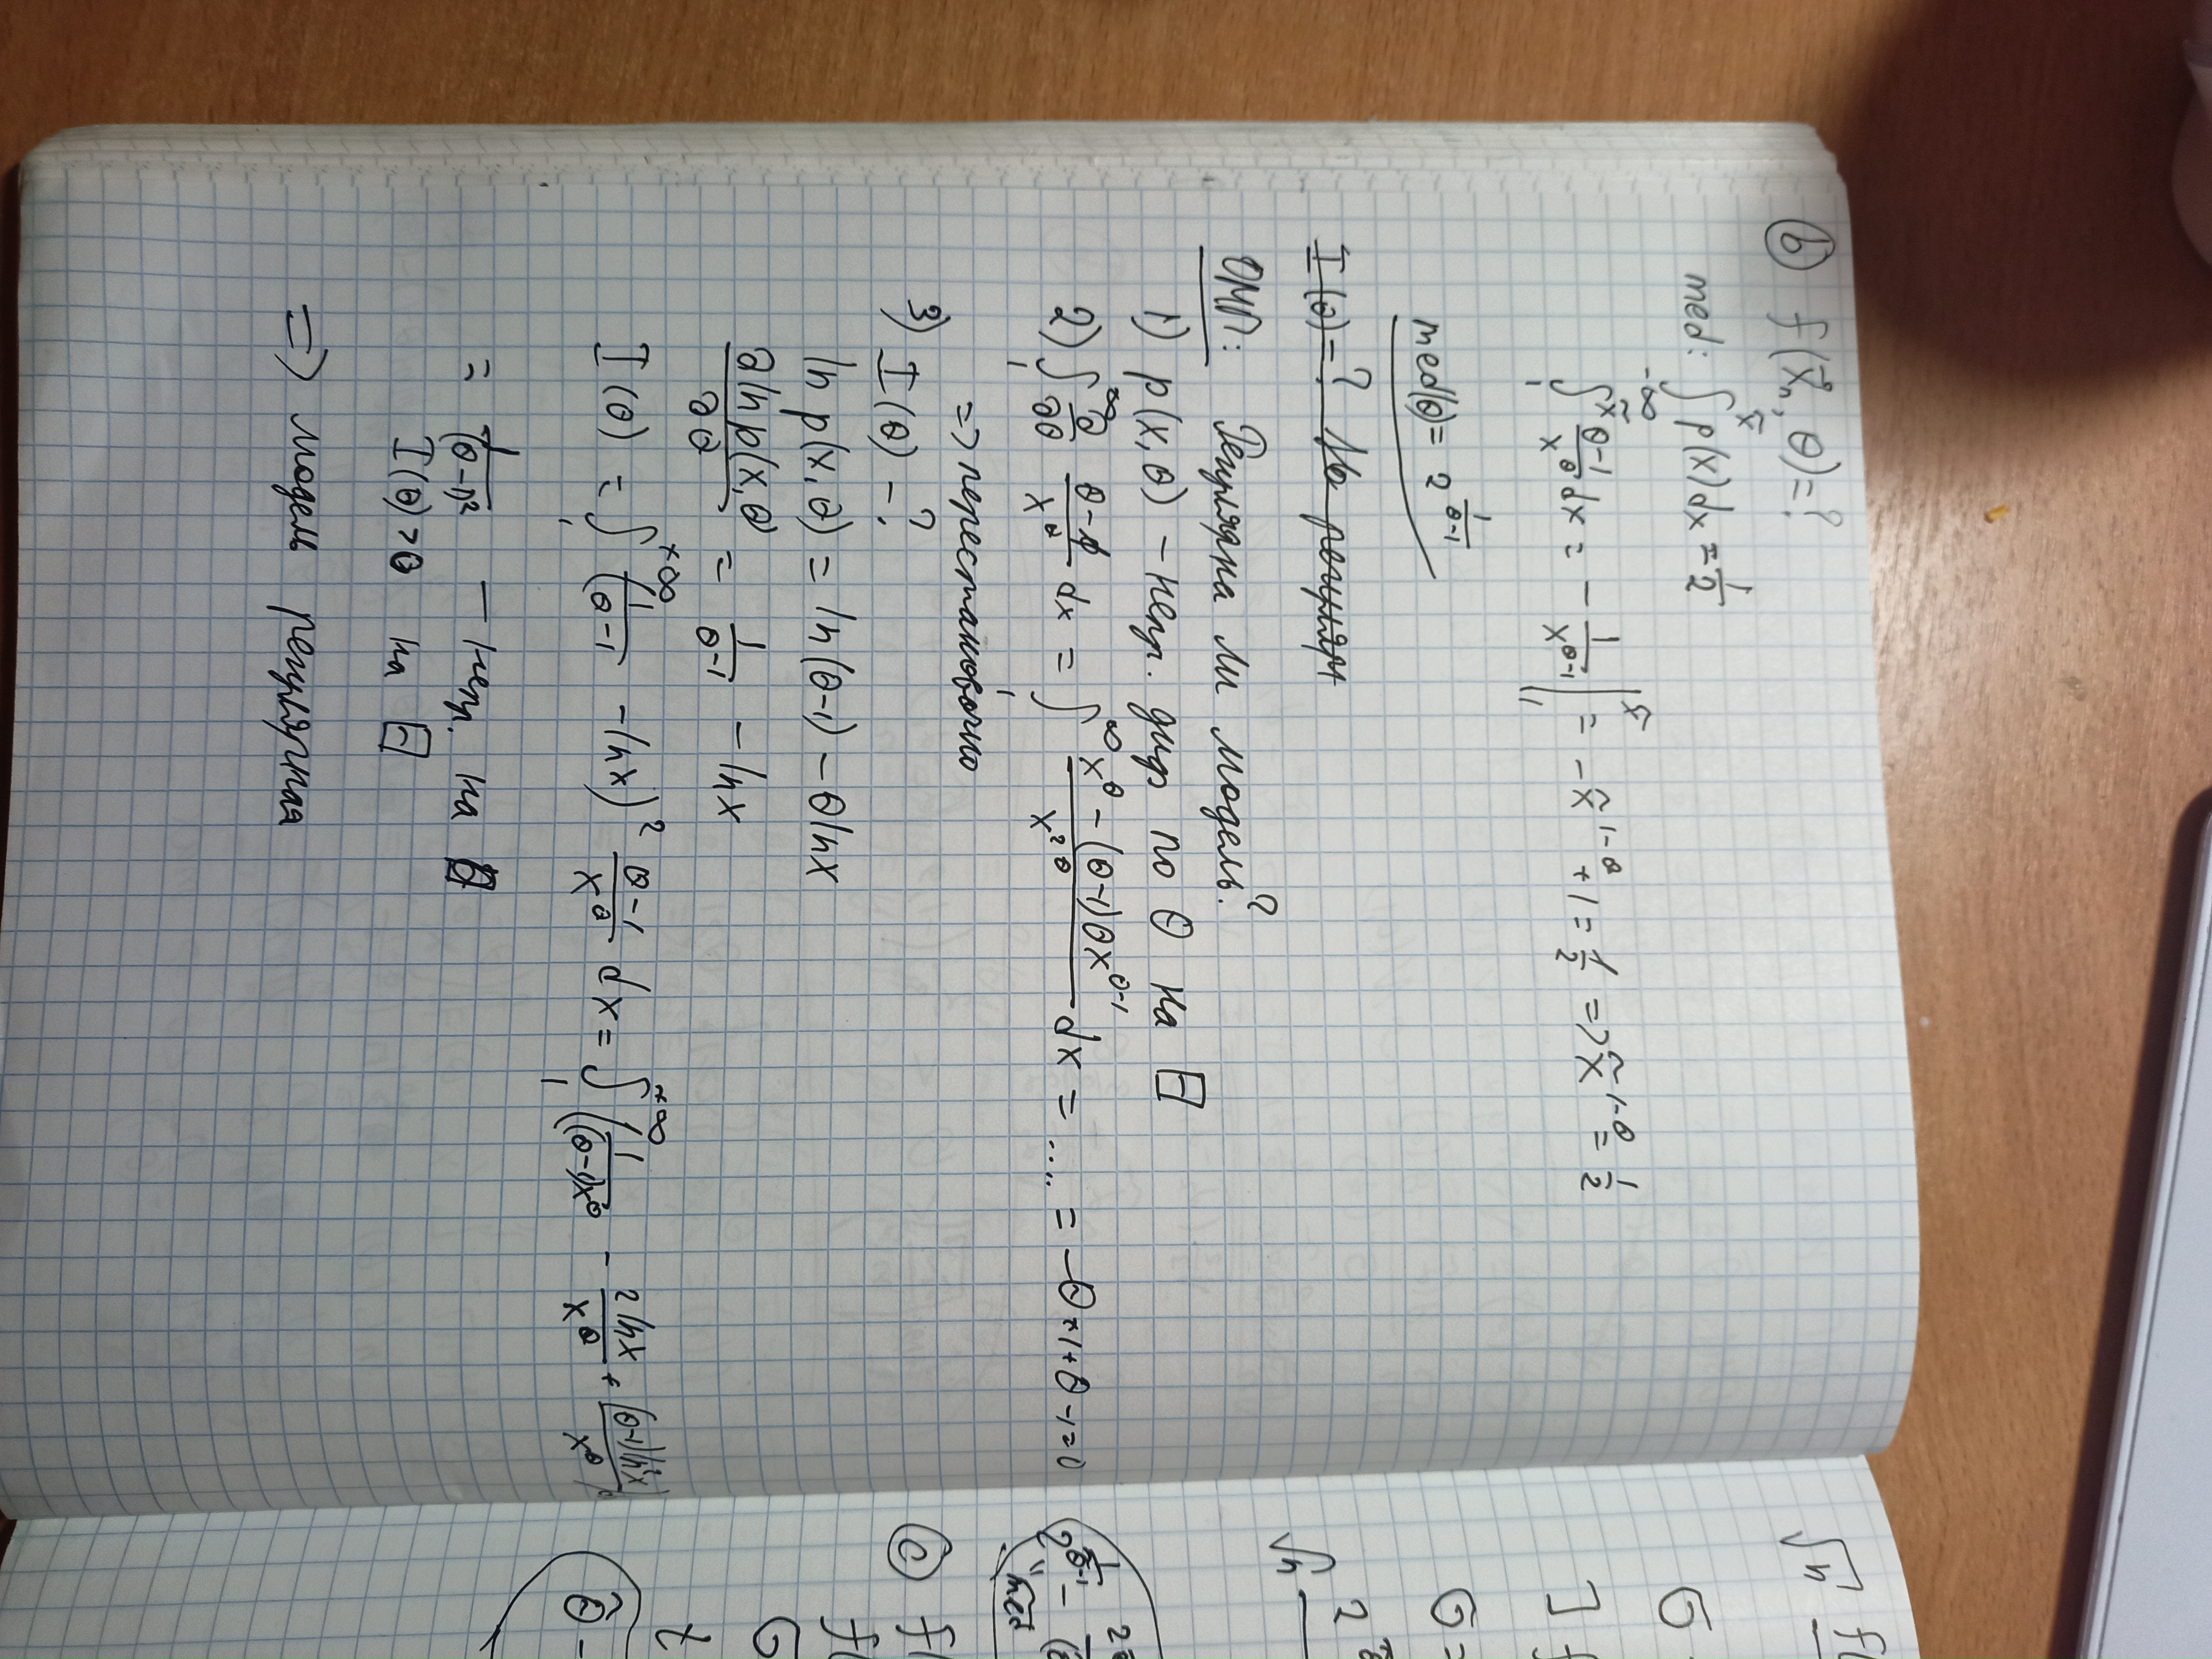 b) f(x⃗ₙ, θ) = ?
med: ∫_{-∞}^{x̃} p(x)dx = 1/2
∫_1^{x̃} (θ-1)/x^θ dx = - 1/x^{θ-1} |_1^{x̃} = -x̃^{1-θ} + 1 = 1/2 => x̃^{1-θ} = 1/2
med(θ) = 2^{1/(θ-1)}
I(θ) - ? регулярн
ОМП: Регулярна ли модель?
1) p(x,θ) - непр. диф по θ на Θ
2) ∫_1^∞ ∂/∂θ (θ-1)/x^θ dx = ∫_1^∞ (x^θ - (θ-1)θx^{θ-1})/x^{2θ} dx = .... = -θ+1+θ-1=0
=> перестановочно
3) I(θ) - ?
ln p(x,θ) = ln(θ-1) - θlnx
∂ln p(x,θ)/∂θ = 1/(θ-1) - lnx
I(θ) = ∫_1^{+∞} (1/(θ-1) - lnx)² (θ-1)/x^θ dx = ∫_1^{+∞} (1/((θ-1)x^θ) - 2lnx/x^θ + (θ-1)ln²x/x^θ)
= 1/(θ-1)² - непр. на Θ
I(θ) > 0 на Θ
=> модель регулярная
√n
σ
] f
σ =
√n 2
2^{1/(θ-1)} -
med
c) f(
f(
σ
t
θ̂ -